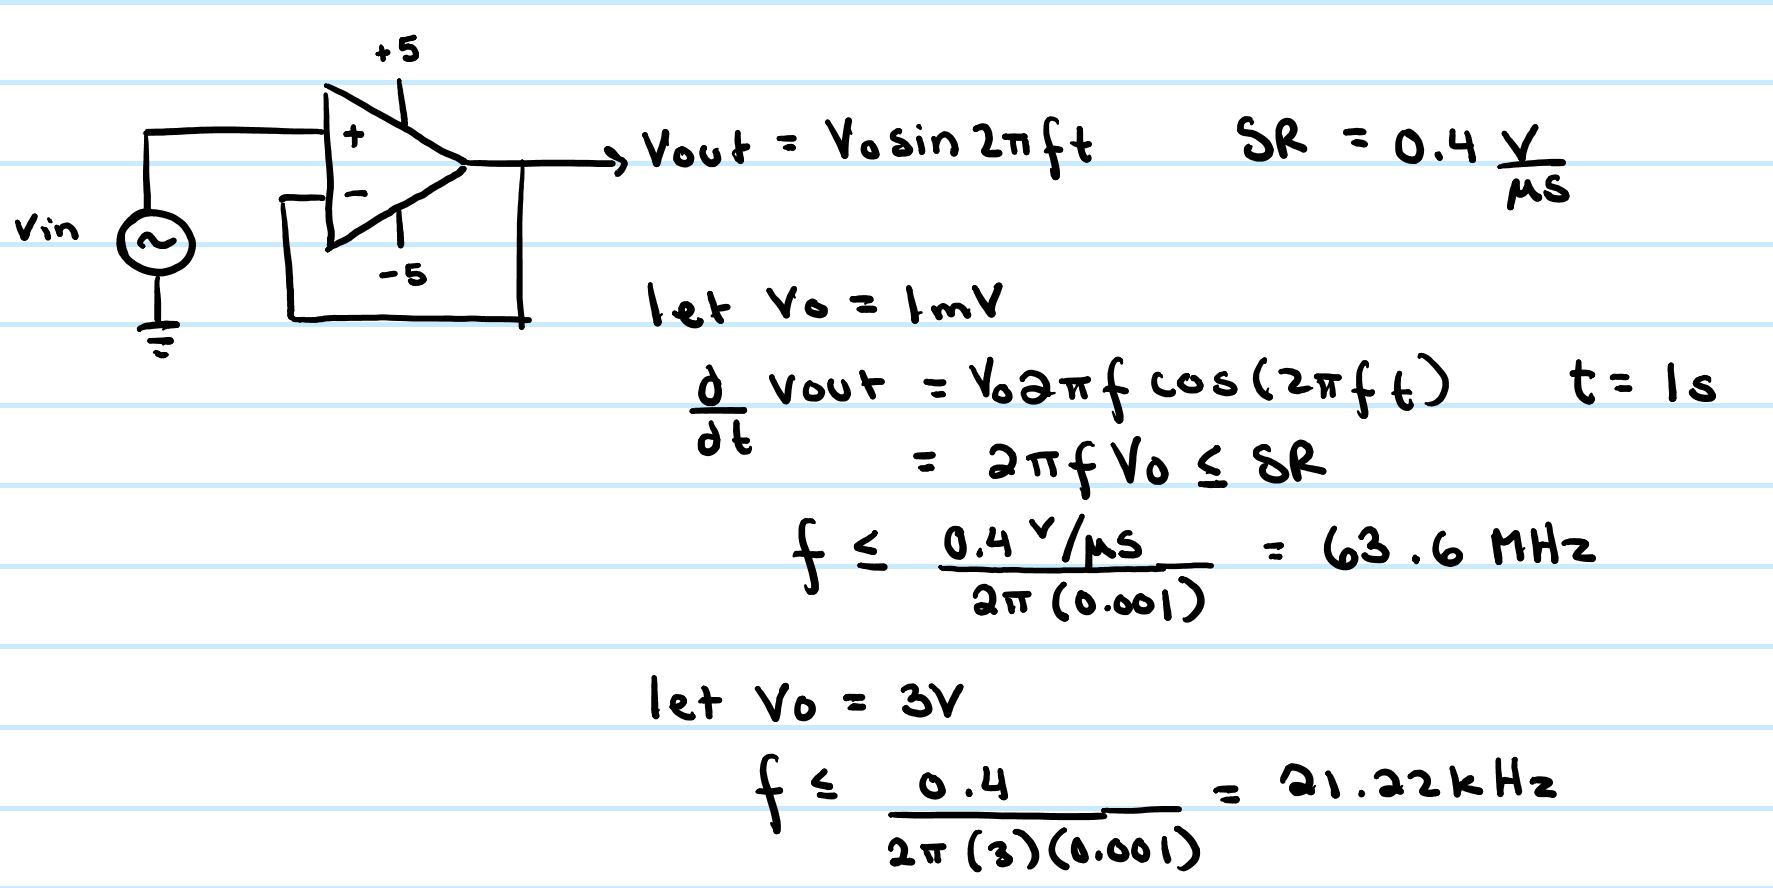 +5
+
Vout = Vo sin 2πft
SR = 0.4 V/μs
-
Vin
-5
let Vo = 1mV
d/dt Vout = Vo2πf cos(2πft)
t = 1s
= 2πfVo ≤ SR
f ≤ 0.4 V/μs / 2π(0.001) = 63.6 MHz
let Vo = 3V
f ≤ 0.4 / 2π(3)(0.001) = 21.22kHz